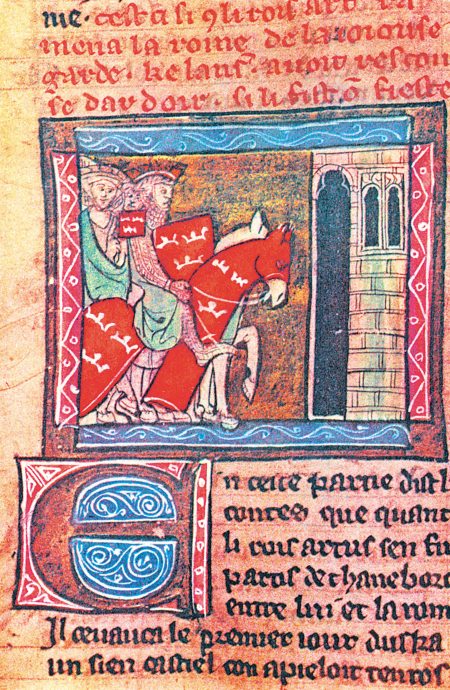 me. cest ci si q̃ li rois art. en
mena la roine de la ioieuse
garde. ke lans'. auoit rescou
se dardoir. si li fist õ fieste
En ceste partie dist l
contes que quant
li rois artus sen fu
partis de thaneborc
entre lui et la roin
Il ceuauca le premier iour dusca
un sien castiel con apieloit tentos